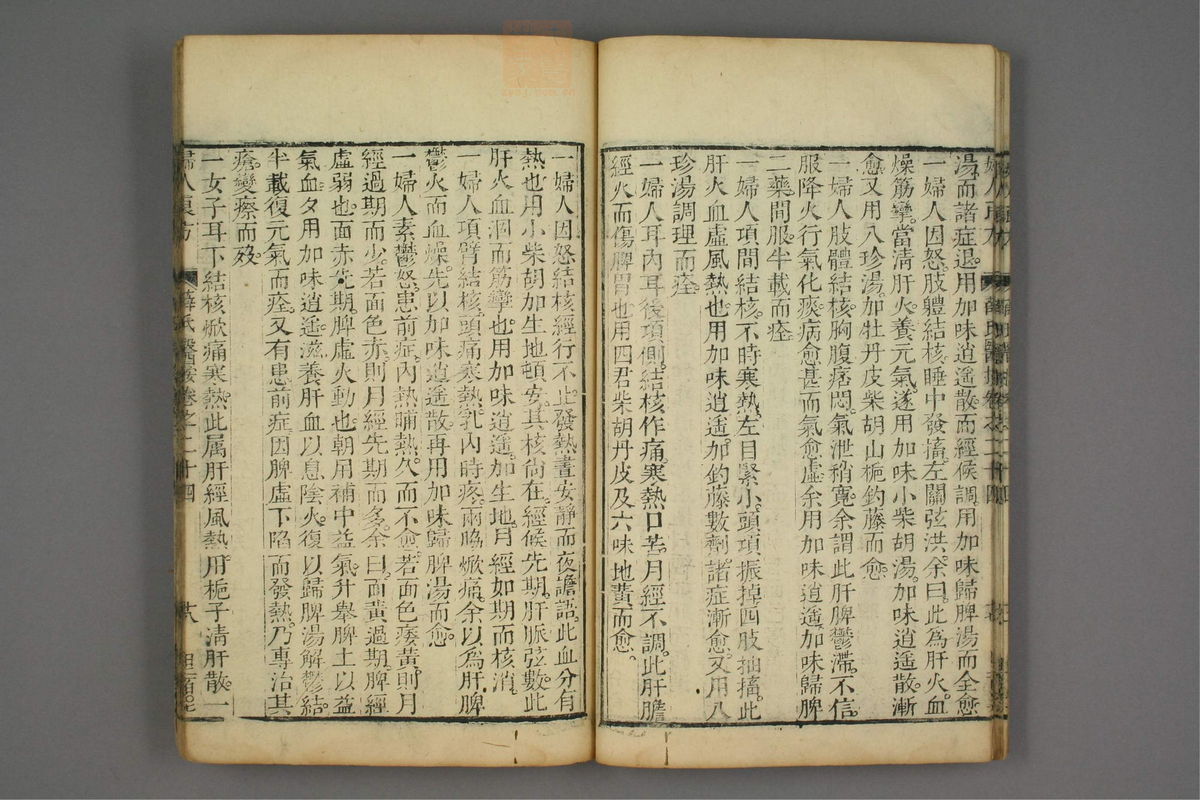 湯而諸症退用加味逍遙散而經候調用加味歸脾湯而全愈
一婦人因怒肢體結核睡中發搐左關弦洪余曰此為肝火血
燥筋攣當清肝火養元氣遂用加味小柴胡湯加味逍遙散漸
愈又用八珍湯加牡丹皮柴胡山梔釣藤而愈
一婦人肢體結核胸腹痞悶氣泄稍寬余謂此肝脾鬱滯不信
服降火行氣化痰病愈甚而氣愈虛余用加味逍遙加味歸脾
二藥間服半載而痊
一婦人項間結核不時寒熱左目緊小頭項振掉四肢抽搐此
肝火血虛風熱也用加味逍遙加釣藤數劑諸症漸愈又用八
珍湯調理而痊
一婦人耳內耳後項側結核作痛寒熱口苦月經不調此肝膽
經火而傷脾胃也用四君柴胡丹皮及六味地黃而愈
一婦人因怒結核經行不止發熱晝安靜而夜譫語此血分有
熱也用小柴胡加生地頓安其核尙在經候先期肝脈弦數此
肝火血涸而筋攣也用加味逍遙加生地月經如期而核消
一婦人項臂結核頭痛寒熱乳內時疼兩脇焮痛余以為肝脾
鬱火而血燥先以加味逍遙散再用加味歸脾湯而愈
一婦人素鬱怒患前症內熱晡熱久而不愈若面色痿黃則月
經過期而少若面色赤則月經先期而多余曰面黃過期脾經
虛弱也面赤先期脾虛火動也朝用補中益氣升舉脾土以益
氣血夕用加味逍遙滋養肝血以息陰火復以歸脾湯解鬱結
半載復元氣而痊又有患前症因脾虛下陷而發熱乃專治其
瘡變瘵而歿
一女子耳下結核焮痛寒熱此属肝經風熱用梔子清肝散一
婦人良方
薛氏醫按卷之二十四